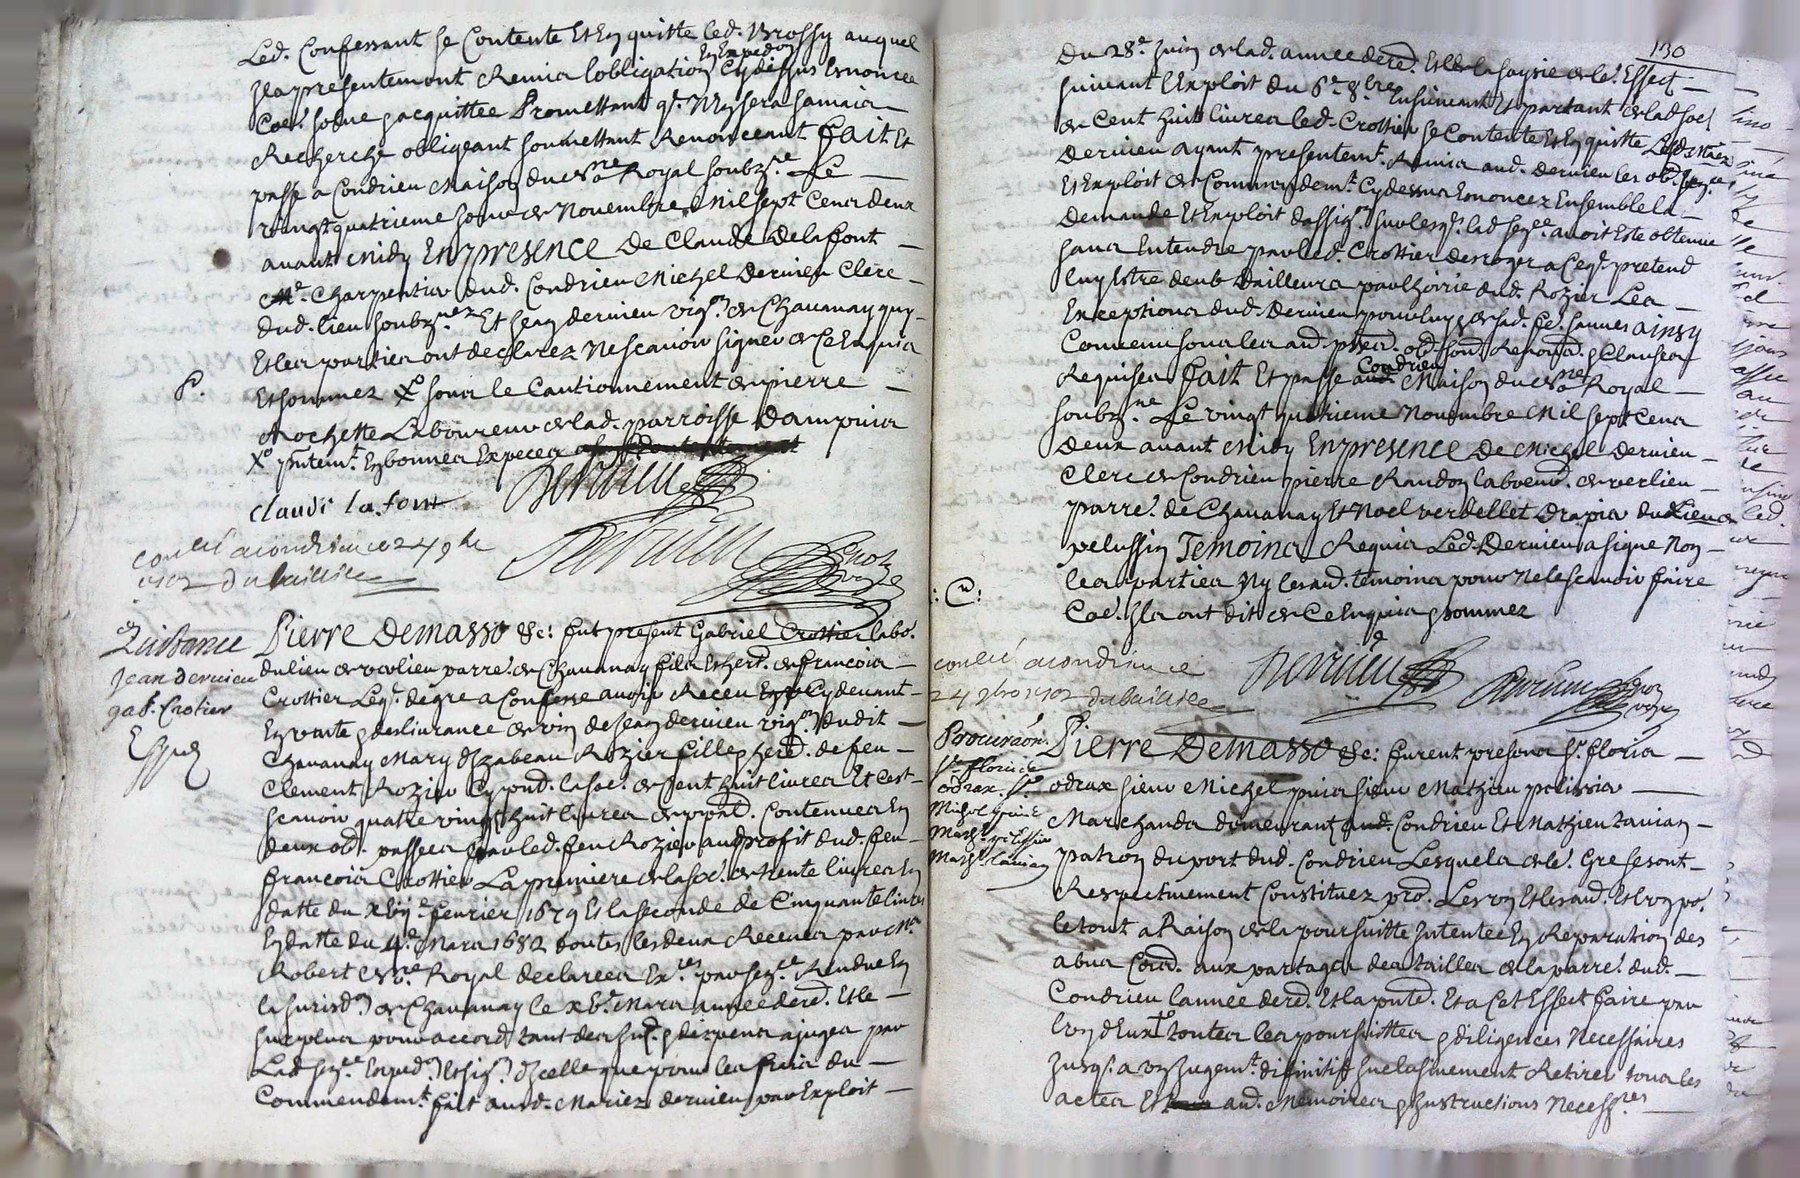 Led. Confessant se Contente Et En quitte led. Brossy auquel
Il a presentement Remis lobligation En Exped.on Cy dessus Enoncee
Coe. solue & acquittee Promettant q. N'En sera Jamais
Recherché obligeant soumettant Renonceant Fait Et
passé a Condrieu Maison du No.re Royal soubz.né Le
vingt quatrieme Jour de Novembre Mil sept Cens deux
avant Midy En presence De Claude Delafont
M.e Charpentier dud. Condrieu Michel Dervieu Clerc
dud. lieu soubz.nez Et Jean dervieu vig.on de Chavanay quy
Et les parties ont declarez Ne scavoir signer de Ce Enquis
Et sommez X.o sous le Cautionnement de pierre
P.
Rochette Laboureur de lad. parroisse dampuis
X.o p.ntem.t En bonnes Especes
Dervieu
claudi la font
Dervieu
conllé a condrieu ce 24 9bre
1702 Dubailliee
No.re Royal
Quittance
Jean Dervieu
gab. Crotier
Exped
Pierre Demasso &c: fut present Gabriel Crottier labo.
du lieu de verlieu parré. de Chavanay fils Et herd. de francois
Crottier Leq. de gré a Confessé avoir Receu Cy devant
En vente & deslivrance de vin de Jean dervieu vig.on dudit
Chavanay Mary d'Izabeau Rozier fille & herd. de feu
Clement Rozier Cy pond. la so.e de Cent huit livres Et C'est
scavoir quatre vingt huit livres de p.pal. Contenues En
deux ob. passées par led. feu Rozier au proffit dud. feu
francois Crottier La premiere de la so.e de trente livres En
datte du Xbij.e fevrier 1679 Et la seconde de Cinquante livres
En datte du 4.e Mars 1682 toutes les deux Receues par M.e
Robert No.re Royal declarees Ex.res par sen.ce Rendue En
la Jurisd.on de Chavanay le xb.e Mars année dere. Et le
surplus pour accord tant des Int. & despens ajugés par
Lad sen.ce Exped.on Et sig.on d'Icelle que pour les frais du
Commendem.t fait ausd. Mariez dervieu par Exploit
130
Du 28.e Juin de lad. année dere. Et de la saysie de le. Effect
suivant l'Exploit du 6.e 8.bre Ensuivant Et partant de lad so.e
de Cent huit livres led. Crottier se Contente Et En quitte Lesd. Mariez
Dervieu ayant presentem.t Remis aud. dervieu les ob. sen.ce
Et Exploit de Commandem.t Cy dessus Enoncez Ensemble la
Demande Et Exploit dassig.on sur lesq. lad sen.ce avoit Esté obtenue
sans Entendre par led. Crottier desroger a Ce q. pretend
luy Estre deub d'ailleurs par l'hoirie dud. Rozier Les
Exceptions dud. Dervieu pour luy & de sad. fe. sauves ainsy
Convenu sous les aud. pnes. ob. soum. Renond. & Clauses
Requises Fait Et passé aud. Condrieu Maison du No.re Royal
soubz.né Le vingt quatrieme Novembre Mil sept Cens
Deux avant Midy En presence De Michel Dervieu
Clerc de Condrieu pierre Randon laboeur. de verlieu
parré. de Chavanay Et Noel verdellet Drapier du Lieu de
pelussin Temoins Requis Led. Dervieu a signé Non
les parties Ny lesaud. temoins pour Ne le scavoir faire
C.n
Coe. Ils ont dit de Ce Enquis & sommez
Dervieu
Dervieu
No.re Royal
conllé a condrieu ce
24 9bre 1702 Dubailliee
Procuraon.
S.r Floris
odrax. S.r
Michel
Math. pelissier
Math. tavian
Pierre Demasso &c: furent presens S.r floris
odrax sieur Michel sieur Mathieu pelissier
Marchands demeurant aud. Condrieu Et Mathieu tavian
patron du port dud. Condrieu Lesquels de le. Gré se sont
Respectivement Constituez pro. Les un Et lesaud. Et l'un po.
le tout a Raison de la poursuitte Intentée En Reparation des
abus Coms. aux partages des tailles de la parre. dud.
Condrieu l'année dere. Et la pnte. Et a Cet Effect faire par
l'un d'Eux toutes les poursuittes & diligences Necessaires
Jusq. a un Jugem.t difinitif successivement Retirer tous les
actes Et aud. Memoires & Instructions Necess.res